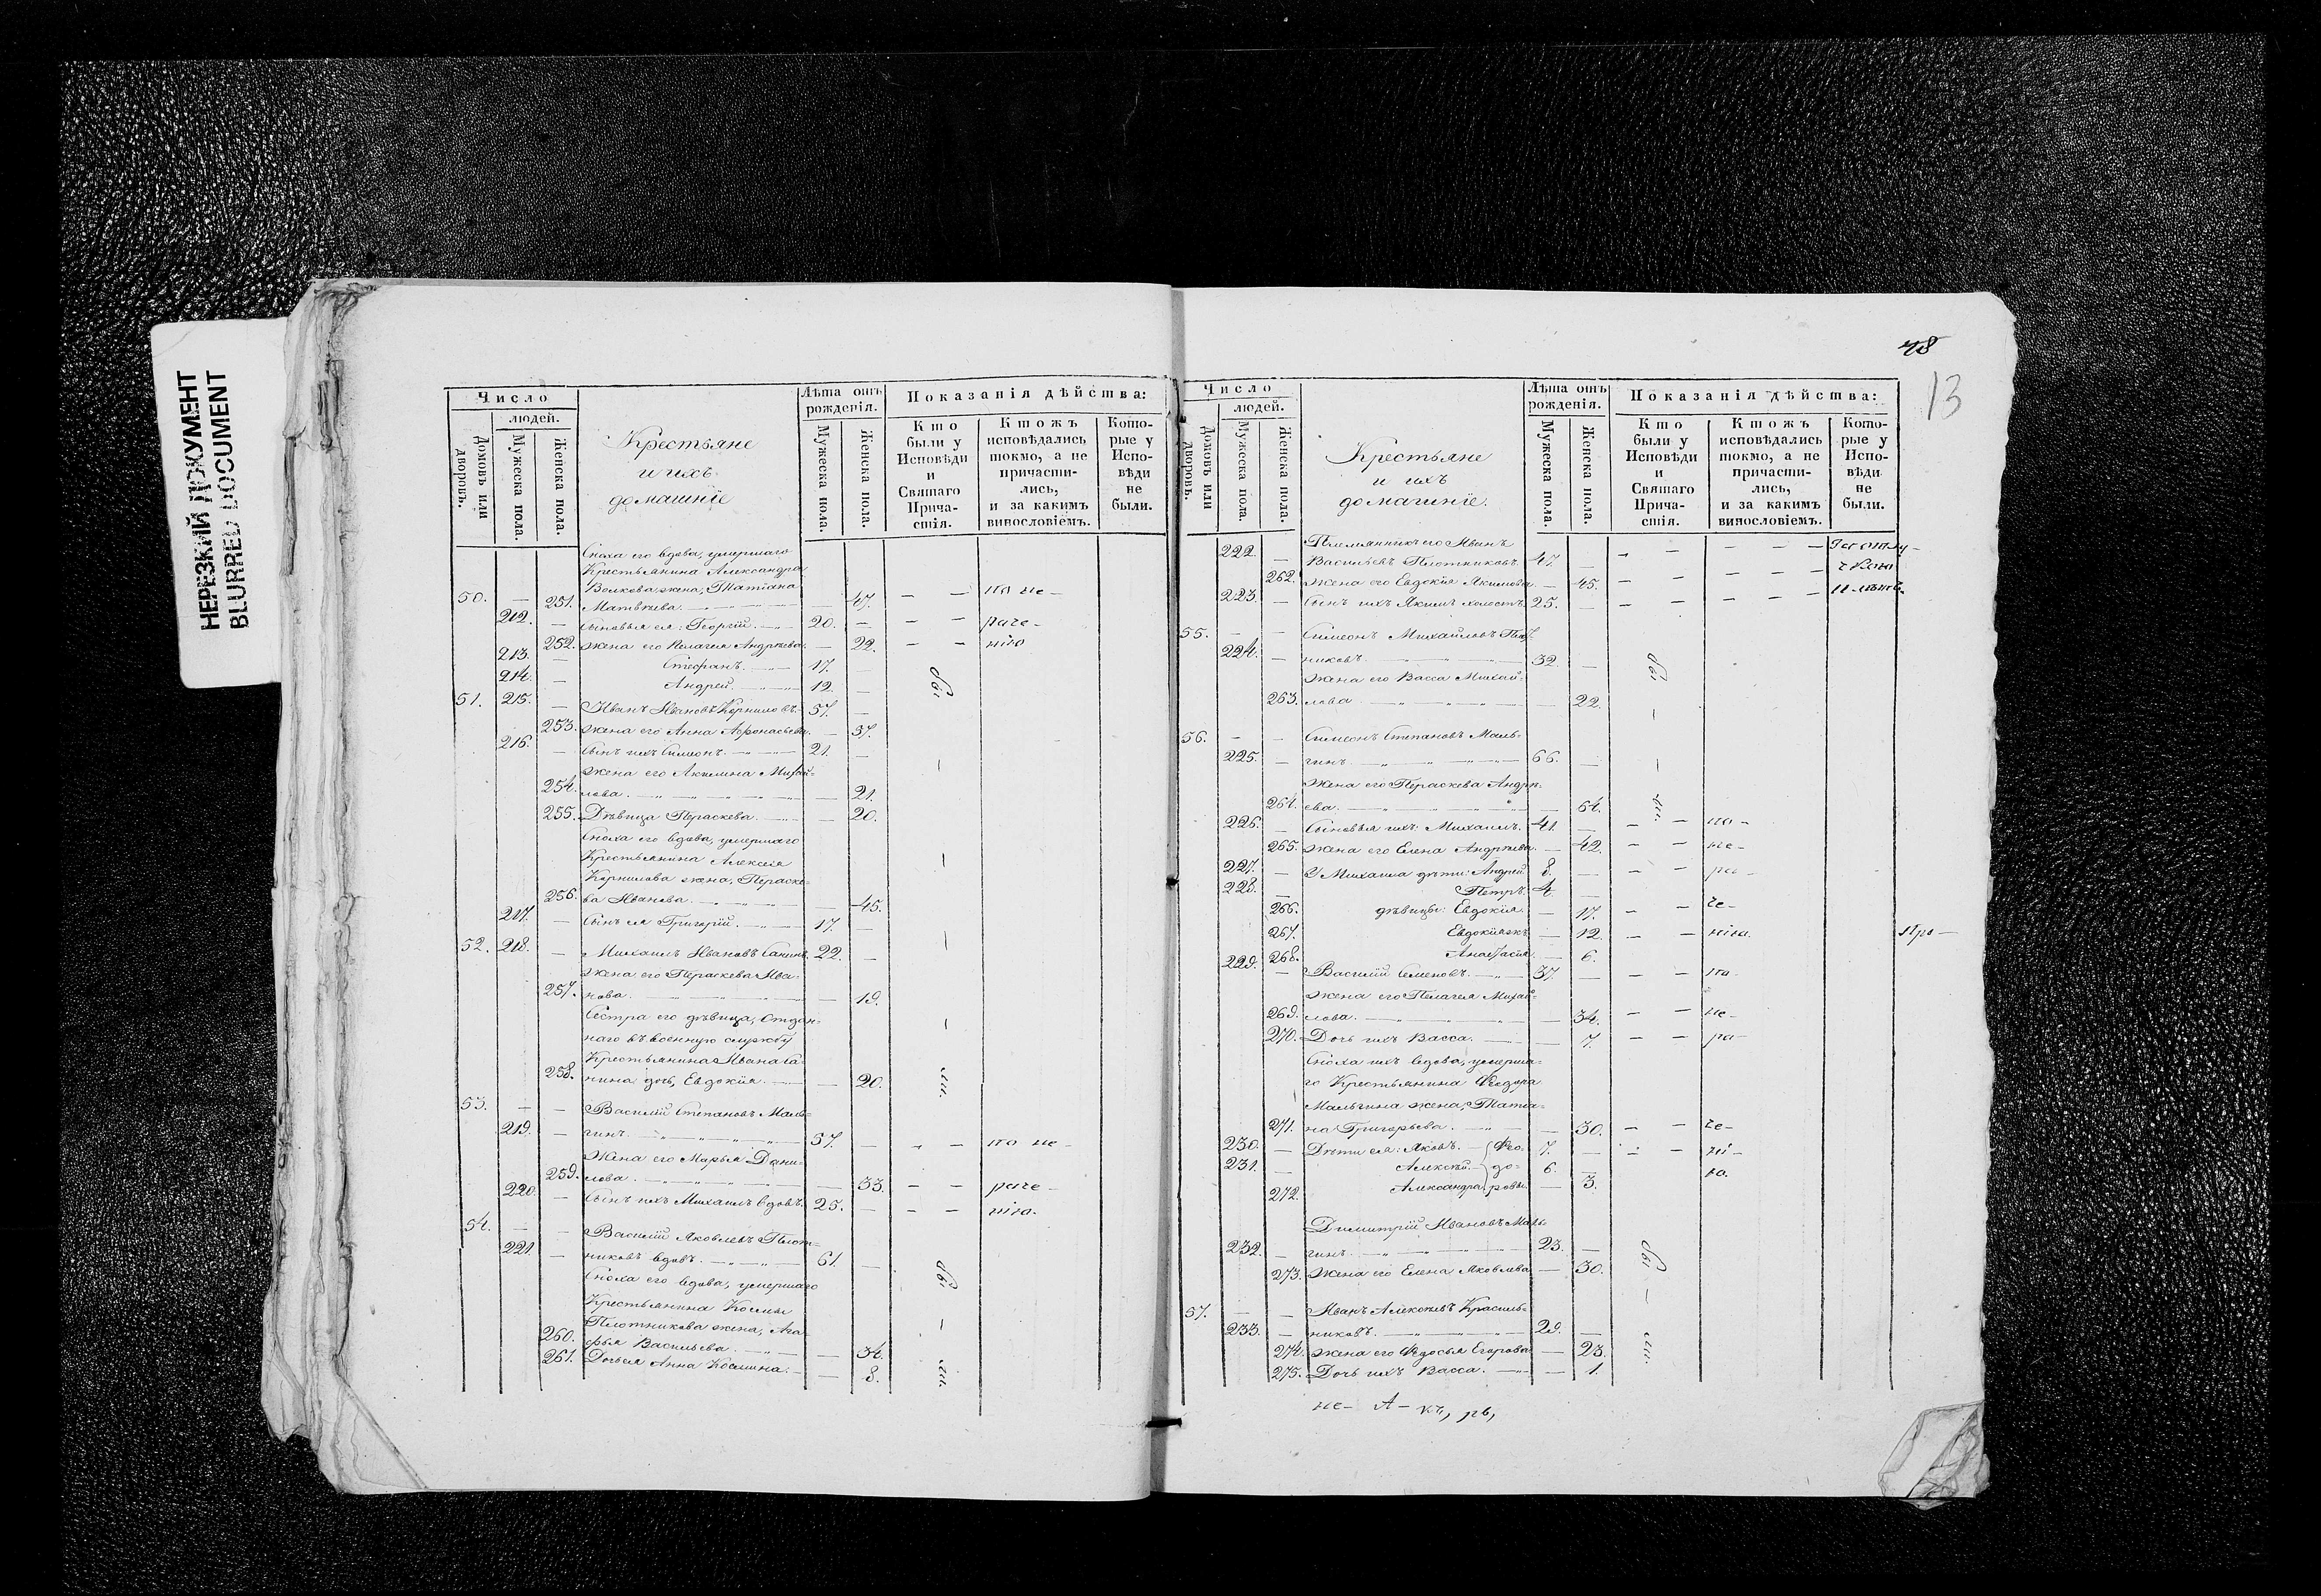 НЕРЕЗКИЙ ДОКУМЕНТ
BLURRED DOCUMENT
Число
людей.
Домовъ или дворовъ.
Мужеска пола.
Женска пола.
Крестьяне
и ихъ
домашніе
Лѣта отъ
рожденія.
Мужеска пола.
Женска пола.
Показанія дѣйства:
Кто
были у
Исповѣди
и
Святаго
Прича-
стія.
Ктожъ
исповѣдались
токмо, а не
причасти-
лись,
и за какимъ
винословіемъ.
Кото-
рые у
Испо-
вѣди
не
были.
Сноха его вдова, умершаго
Крестьянина Александра
Волкова жена, Татіана
50. — 251. Матвѣева. — 47. — — по не-
212. — Сыновья ея: Георгій. 20. — — — раче-
252. жена его Пелагея Андреева. — 22. — — нію
213. — Стефанъ. 17. —
214. — Андрей. 12. —
бы
51. 215. — Иванъ Ивановъ Корниловъ. 57. —
253. жена его Анна Афонасьева. — 57.
216. — Сынъ ихъ Симеонъ. 21. —
жена его Акилина Михай-
254. лова. — 21.
255. Дѣвица Пераскева. — 20.
Сноха его вдова, умершаго
Крестьянина Алексея
Корнилова жена, Пераске-
256. ва Иванова. — 45.
217. — Сынъ ея Григорій. 17. —
52. 218. — Михаилъ Ивановъ Санинъ. 22. —
жена его Пераскева Ива-
257. нова. — 19.
Сестра его дѣвица, Отдан-
наго въ военную службу
Крестьянина Ивана Са-
258. нина дочь, Евдокія. — 20. ли.
53. — — Василій Степановъ Маль-
219. — гинъ. 57. — — — по не-
Жена его Марья Дани-
259. лова. — 33. — — раче-
220. — Сынъ ихъ Михаилъ вдовъ. 25. — — — нію.
54. — — Василій Яковлевъ Плот-
221. — никовъ вдовъ. 61. — бы
Сноха его вдова, умершаго
Крестьянина Космы
Плотникова жена, Ага-
260. фья Васильева. — 34.
261. Дочь ея Анна Космина. — 8. ли.
48
13
Число
людей.
Домовъ или дворовъ.
Мужеска пола.
Женска пола.
Крестьяне
и ихъ
домашніе.
Лѣта отъ
рожденія.
Мужеска пола.
Женска пола.
Показанія дѣйства:
Кто
были у
Исповѣди
и
Святаго
Прича-
стія.
Ктожъ
исповѣдались
токмо, а не
причасти-
лись,
и за какимъ
винословіемъ.
Кото-
рые у
Испо-
вѣди
не
были.
Племянникъ его Иванъ
222. — Васильевъ Плотниковъ. 47. —
262. Жена его Евдокія Якимова. — 45.
223. — Сынъ ихъ Якимъ холостъ. 25. —
55. — — Симеонъ Михайловъ Плот-
224. — никовъ. 32. — бы
Жена его Васса Михай-
263. лова — 22.
56. — — Симеонъ Степановъ Маль-
225. — гинъ. 66. —
Жена его Пераскева Андре-
264. ева. — 64. ли.
226. — Сыновья ихъ: Михаилъ. 41. — — — по-
265. Жена его Елена Андреева. — 42. — — не-
227. — У Михаила дѣти: Андрей. 8. — — — ра-
228. — Петръ. 4. —
266. дѣвицы: Евдокія. — 17. — — че-
267. Евдокія жъ — 12. — — нію. Про-
268. Анастасія. — 6.
229. — Василій Семеновъ. 37. — — — по-
Жена его Пелагея Михай-
269. лова. — 34. — — не-
270. Дочь ихъ Васса. — 7. — — ра-
Сноха ихъ вдова, умерша-
го Крестьянина Феодора
Мальгина жена, Татіа-
271. на Григорьева. — 30. — — че-
230. — Дѣти ея: Яковъ. Фео- 7. — — — ні-
231. — Алексѣй. до- 6. — ю.
272. Александра. ровы. — 3.
Димитрій Ивановъ Маль-
232. — гинъ. 23. — бы
273. Жена его Елена Яковлева. — 30. —
57. — — Иванъ Алексѣевъ Красиль-
233. — никовъ. 29. —
274. Жена его Федосья Егорова. — 23. ли.
275. Дочь ихъ Васса. — 1.